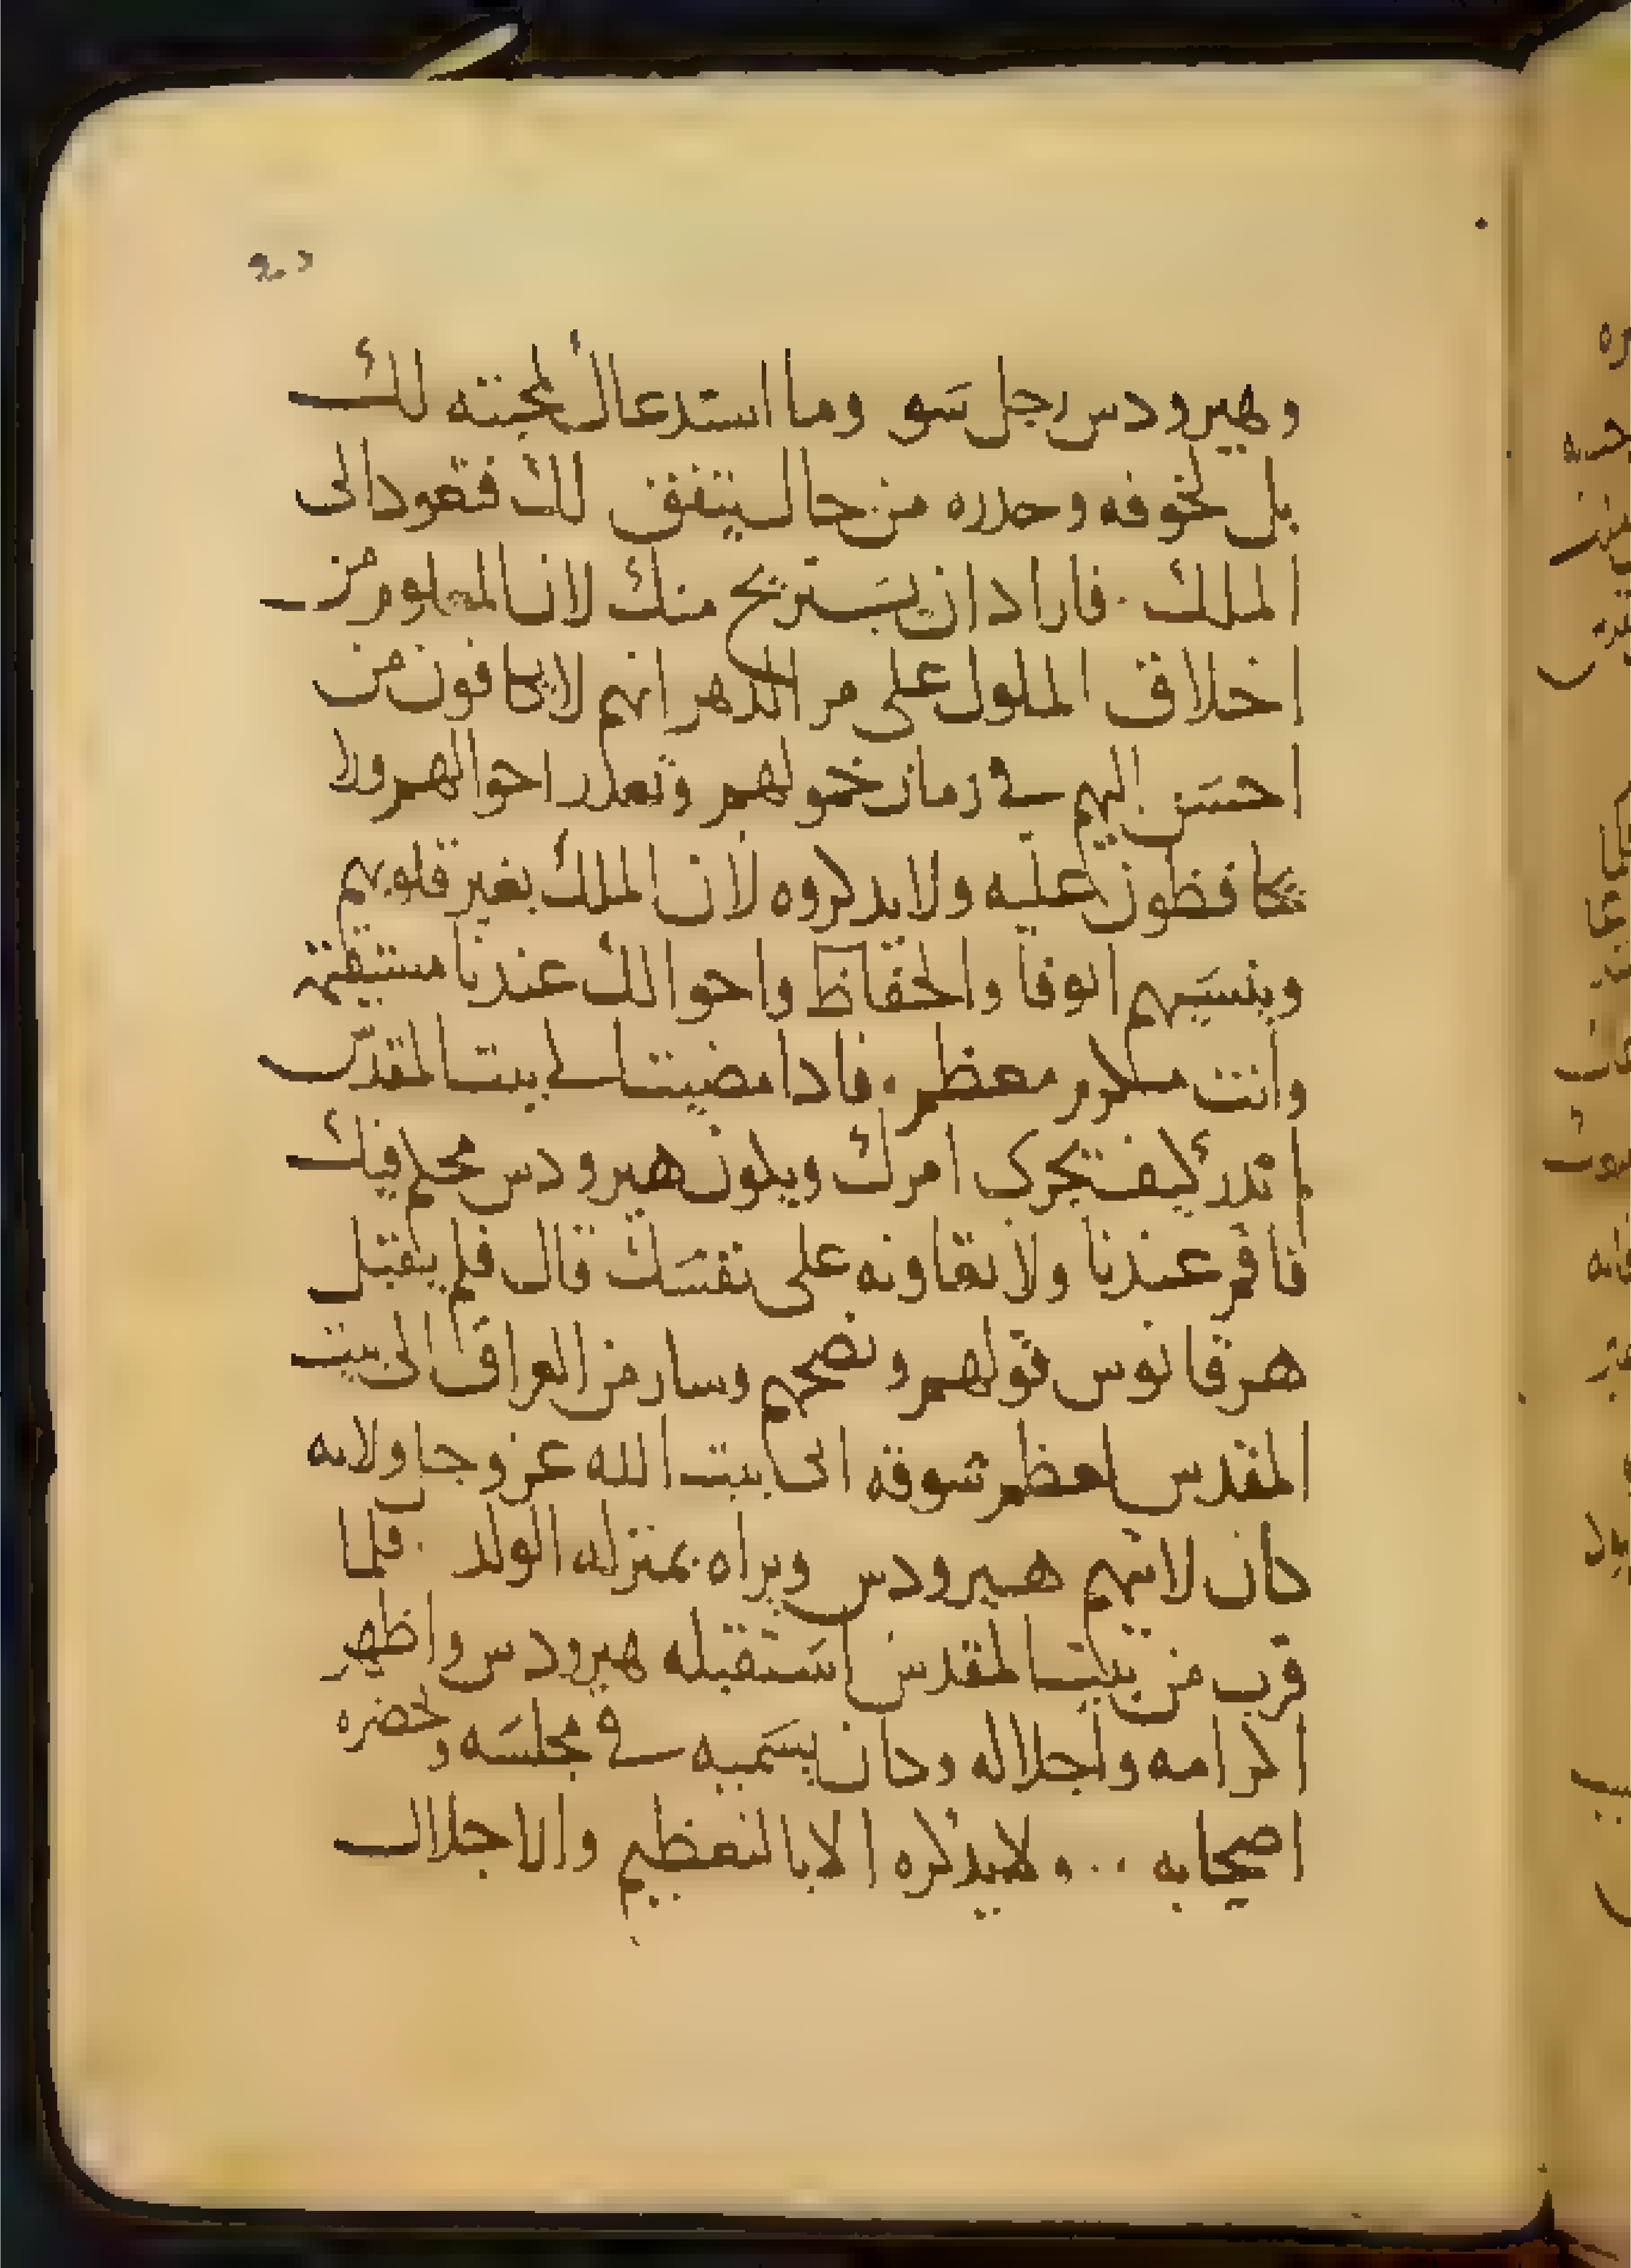 وهيرودس رجل سَو وما استدعاك لمحبته لك
بل لخوفه وحدره من حال يتفق لك فتعود الى
الملك . فاراد ان يسَتريح منك لان المعلوم من
اخلاق الملوك على مر الدهر انهم لا يكافون من
احسَن اليهم في زمان خمولهم وتعدر احوالهم ولا
يحافظون عليه ولا يدكروه لان الملك يغير قلوبهم
وينسَيهم الوفا والحفاظ واحوالك عندنا مستقيمة
وانت مكرم معظم . فادا مضيت الى بيت المقدس
لم تدر كيف تجرى امرك ويكون هيرودس محكم فيك
فاقم عندنا ولا تعاونه على نفسَك قال فلم يقبل
هرقانوس قولهم ونصحهم وسار من العراق الى بيت
المقدس لعظم شوقه الى بيت الله عز وجل ولانه
كان لا يتهم هيرودس ويراه بمنزله الولد . فلما
قرب من بيت المقدس اسَتقبله هيرودس واظهر
اكرامه واجلاله وكان يسَميه في مجلسَه وحضره
اصحابه . . ولا يذكره الا بالتعظيم والاجلال